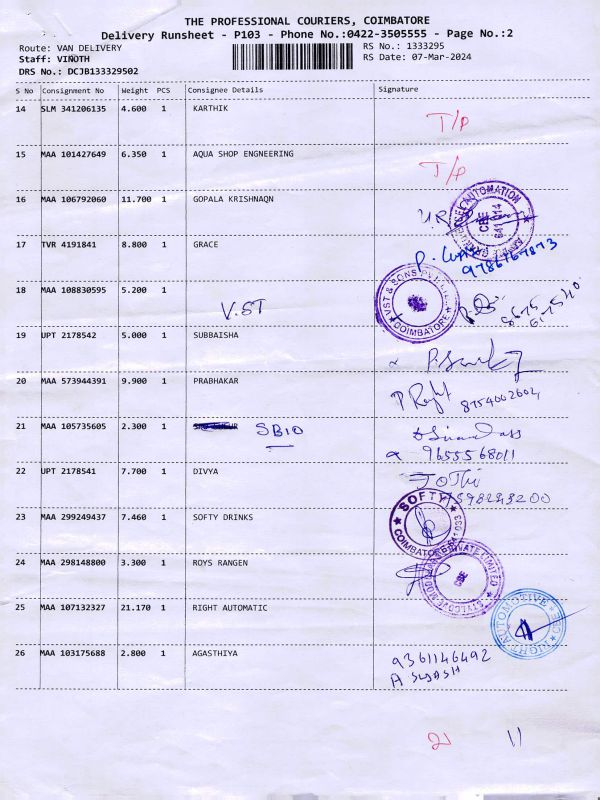 THE PROFESSIONAL COURIERS, COIMBATORE
Delivery Runsheet - P103 - Phone No.:0422-3505555 - Page No.:2
Route: VAN DELIVERY
RS No.: 1333295
Staff: VINOTH
RS Date: 07-Mar-2024
DRS No.: DCJB133329502
S No Consignment No Weight PCS Consignee Details Signature
14 SLM 341206135 4.600 1 KARTHIK T/P
15 MAA 101427649 6.350 1 AQUA SHOP ENGNEERING T/P
16 MAA 106792060 11.700 1 GOPALA KRISHNAQN
AUTOMATION CBE
17 TVR 4191841 8.800 1 GRACE
9786767873
18 MAA 108830595 5.200 1 V.ST
VST & SONS COIMBATORE
19 UPT 2178542 5.000 1 SUBBAISHA
20 MAA 573944391 9.900 1 PRABHAKAR
21 MAA 105735605 2.300 1 SBIO
9655568011
22 UPT 2178541 7.700 1 DIVYA JOTHI
23 MAA 299249437 7.460 1 SOFTY DRINKS
SOFTY COIMBATORE
24 MAA 298148800 3.300 1 ROYS RANGEN
PRIVATE LIMITED CBE
25 MAA 107132327 21.170 1 RIGHT AUTOMATIC
RIGHT AUTOMOTIVE CBE
26 MAA 103175688 2.800 1 AGASTHIYA 9361146492
21 11